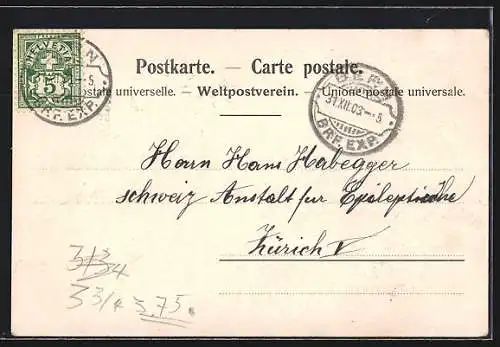 HELVETIA
5
BRF. EXP.
Postkarte. — Carte postale.
postale universelle. — Weltpostverein. — Unione postale universale.
BERN
31.XII.03 — 5
BRF. EXP.
Herrn Hans Habegger
schweiz Anstalt fur Epileptische
Zürich V
3 3/4 3.75.